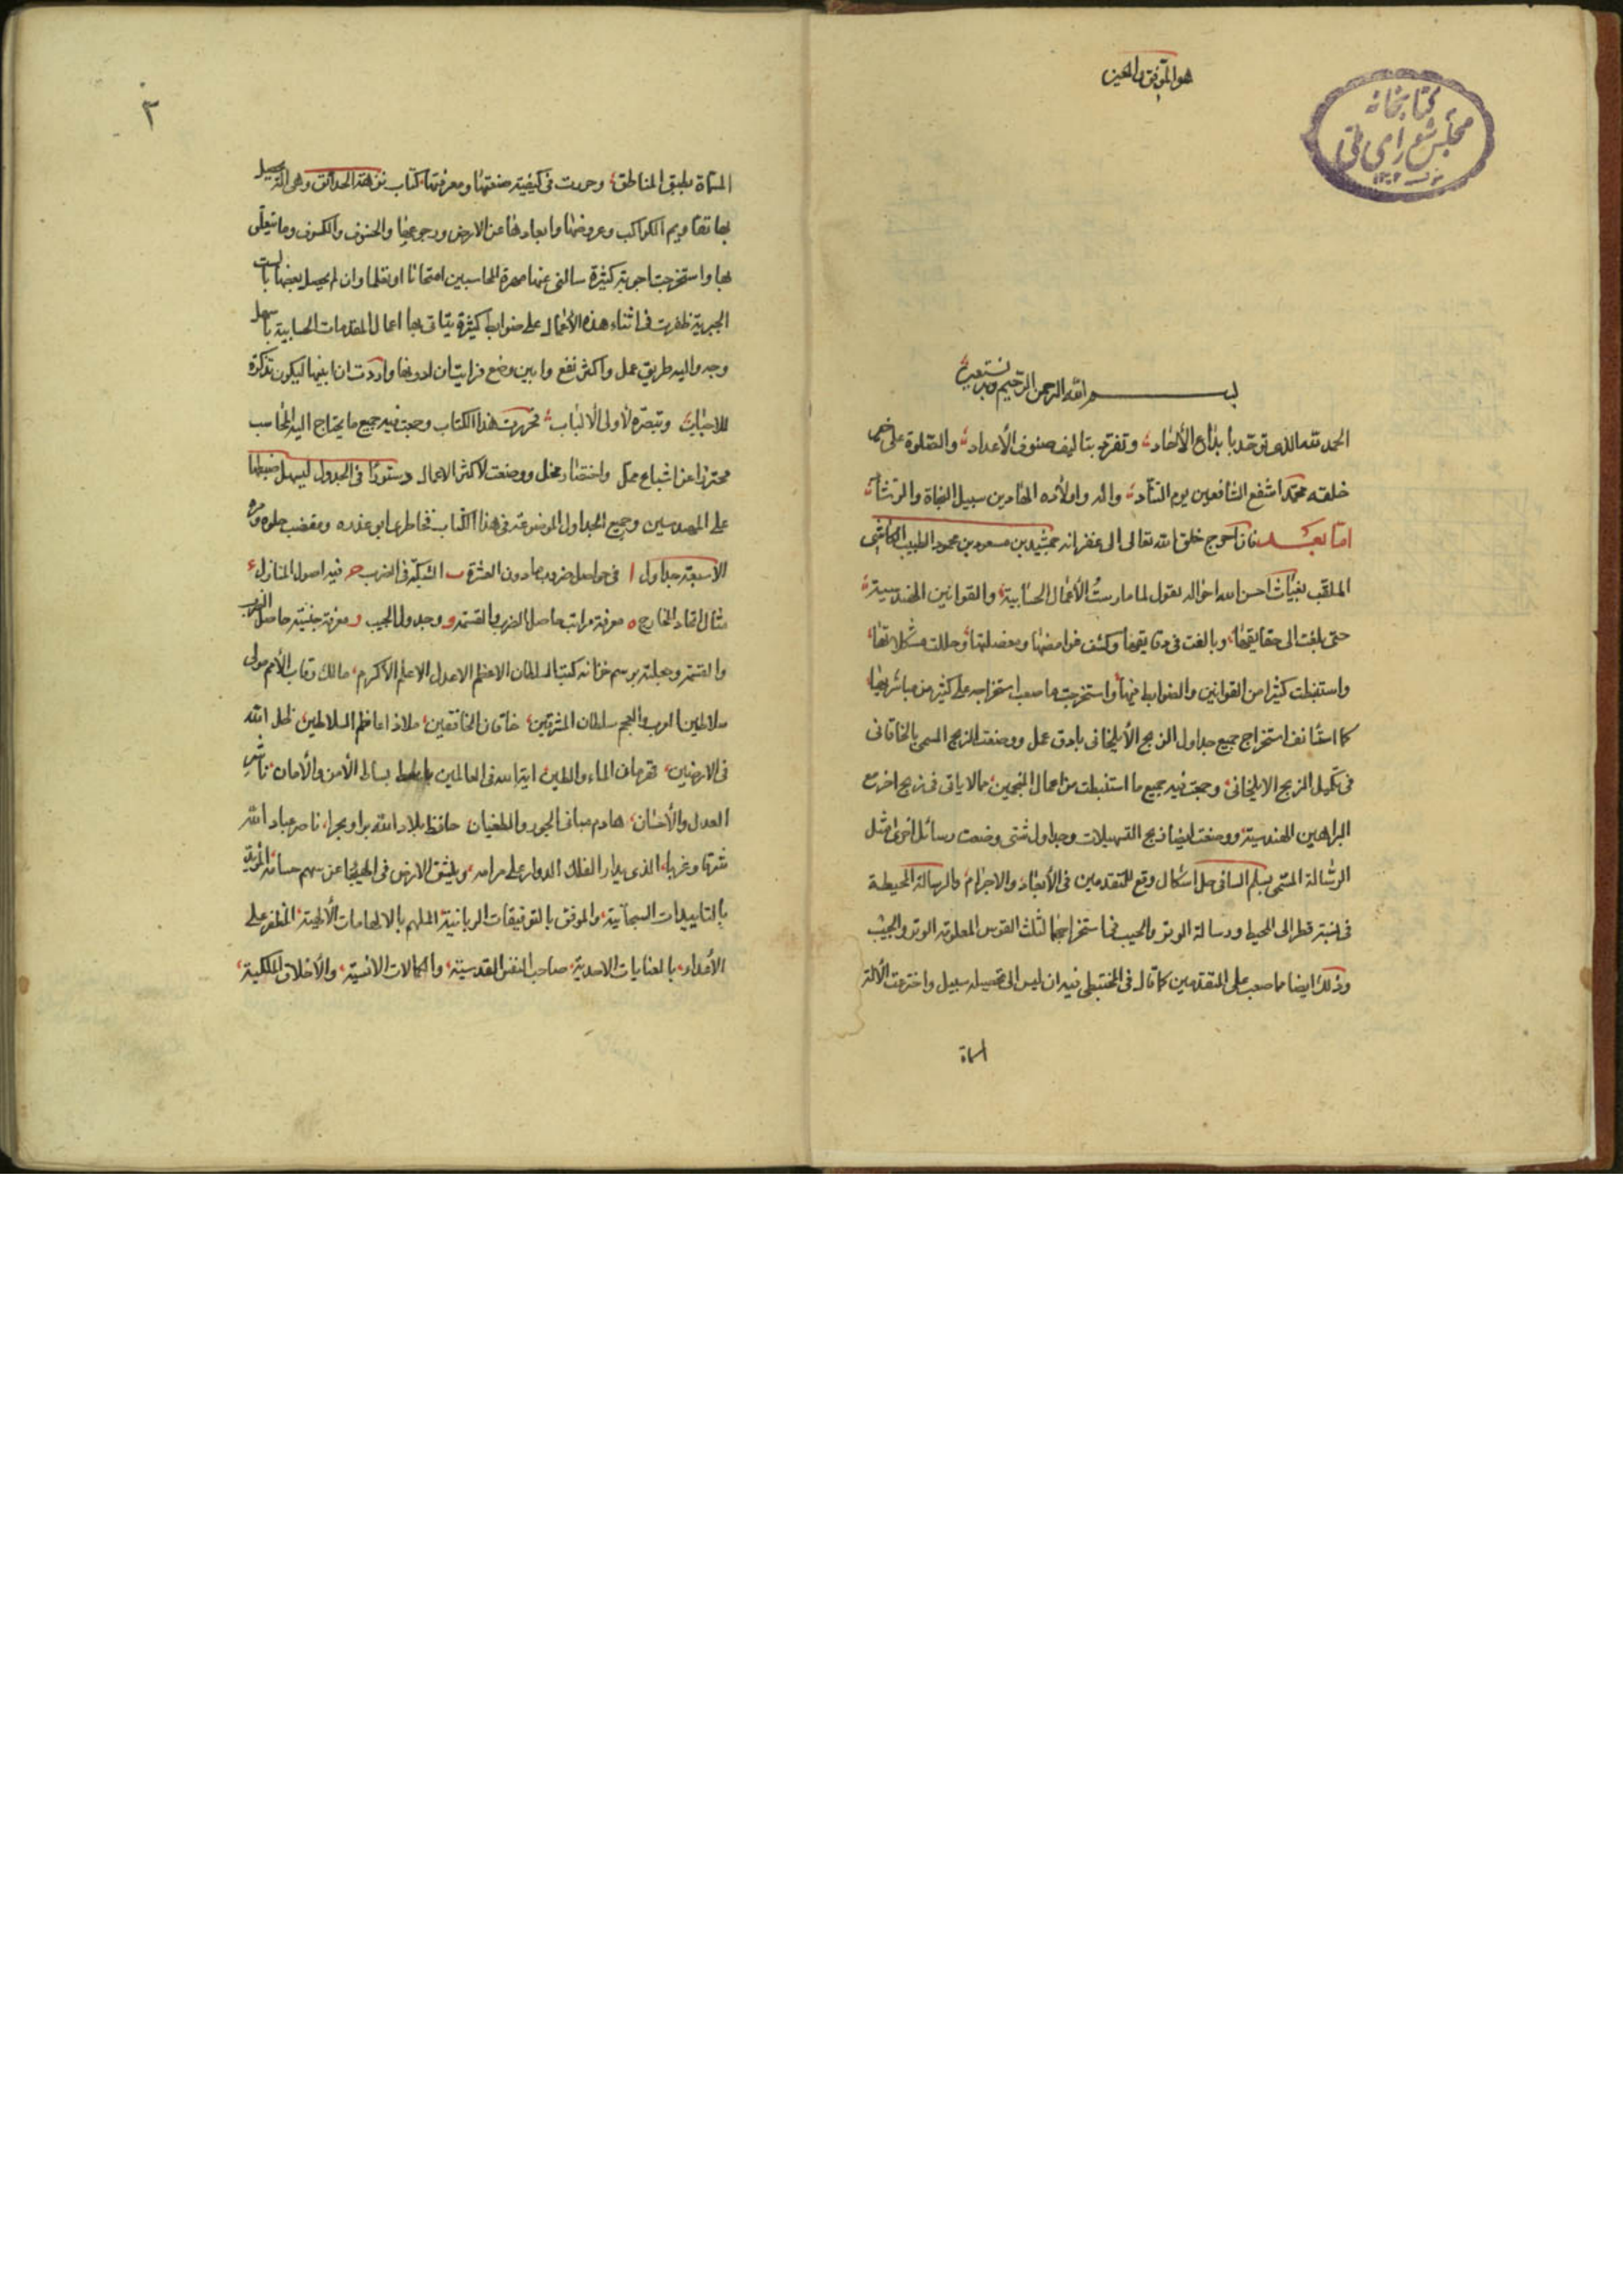 هو الموفق والمعين
كتابخانه
مجلس شورای ملی
بسم الله الرحمن الرحيم وبه نستعين
الحمد لله الذى توحد بابداع الآحاد وتفرد بتاليف صنوف الاعداد والصلوة على خير
خلقه محمد اشفع الشافعين يوم التناد واله واولاده الهادين سبيل النجاة والرشاد
اما بعد فان احوج خلق الله تعالى الى غفرانه جمشيد بن مسعود بن محمود الطبيب الكاشى
الملقب بغياث احسن الله احواله يقول لما مارست الاعمال الحسابية والقوانين الهندسية
حتى بلغت الى حقايقها وبالغت فى دقايقها وكشف غوامضها ومعضلتها وحللت مشكلاتها
واستنبطت كثيرا من القوانين والضوابط فيها واستخرجت ما صعب استخراجه على كثير من مباشريها
كما استأنف استخراج جميع جداول الزيج الايلخانى بادق عمل ووضعت الزيج المسمى بالخاقانى
فى تكميل الزيج الايلخانى وجمعت فيه جميع ما استنبطت من اعمال المنجمين مما لا ياتى فى زيج اخر مع
البراهين الهندسية ووضعت ايضا زيج التسهيلات وجداول شتى وضعت رسائل اخرى مثل
الرسالة المسمى بسلم السما فى حل اشكال وقع للمتقدمين فى الابعاد والاجرام والرسالة المحيطية
فى نسبة قطر الى المحيط ورسالة الوتر والجيب فى استخراجهما لثلث القوس المعلومة الوتر والجيب
وذلك ايضا مما صعب على المتقدمين كما قال فى المجسطى فيه ان ليس الى تحصيله سبيل واخترعت الآلة
المسماة
٢
المسماة بطبق المناطق وحررت فى كيفية صنعتها ومعرفتها كتاب نزهة الحدائق وهى التى يحصل
بها تقاويم الكواكب وعروضها وابعادها عن الارض ورجوعها والخسوف والكسوف وما يتعلق
بها واستخرجت اجوبة كثيرة سالنى عنها مهرة المحاسبين امتحانا او تعلما وان لم يحصل بعضها بالست
الجبرية ظفرت فى اثناء هذه الاعمال على ضوابط كثيرة يتاتى بها اعمال المقدمات الحسابية باسهل
وجه واليه طريق عمل واكثر نفع وابين وضع فرايت ان ادونها واردت ان ابينها ليكون تذكرة
للاحباب وتبصرة لاولى الالباب فحررت هذا الكتاب وجمعت فيه جميع ما يحتاج اليه المحاسب
محترزا عن اشباع ممل واختصار مخل ووضعت لاكثر الاعمال دستورا فى الجدول ليسهل ضبطها
على المهندسين وجميع الجداول الموضوعة فى هذا الكتاب فخاطرى ابو عذره ومقضب حلوه ومره
الا سبعة جداول ا فى حواصل ضروب ما دون العشرة ب الشبكة فى الضرب ح فيه اصول المنازل ء
مثال اتحاد المخارج ه معرفة مراتب حاصل الضرب والقسمة و وجدول الجيب ز معرفة جنسية حاصل الضرب
والقسمة وجعلته برسم خزانة كتب السلطان الاعظم الاعدل الاعلم الاكرم مالك رقاب الامم مولى
سلاطين العرب والعجم سلطان المشرقين خاقان الخافقين ملاذ اعاظم السلاطين ظل الله
فى الارضين قهرمان الماء والطين اية الله فى العالمين باسط بساط الامن والامان ناشر
العدل والاحسان هادم مبانى الجور والطغيان حافظ بلاد الله برا وبحرا ناصر عباد الله
شرقا وغربا الذى يدار الفلك الدوار على مرامه وينشق الارض فى الهيجا عن سهم حسامه المؤيد
بالتاييدات السبحانية والموفق بالتوفيقات الربانية الملهم بالالهامات الالهية المظفر على
الاعداء بالعنايات الاحدية صاحب النفس القدسية والكمالات الانسية والاخلاق الملكية